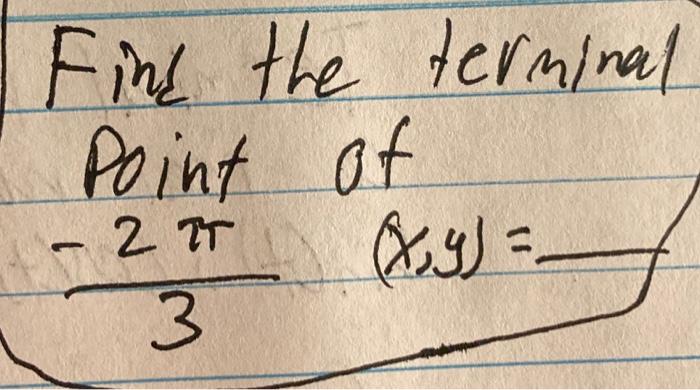 Find the terminal
Point of
-2π/3 (x,y) = ___